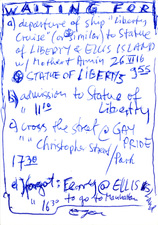 WAITING FOR
a) departure of ship "Liberty
Cruise" (or similar) to Statue
of LIBERTY & ELLIS ISLAND
w/ Mother & Armin 26 VI 16
@ STATUE OF LIBERTY 5 955
b) admission to Statue of
" 1110 Liberty
c) cross the street @ GAY
" Christopher Street/ PRIDE
1730 Park
d) forgot: Ferry @ ELLIS
" 1630 to go to Manhattan